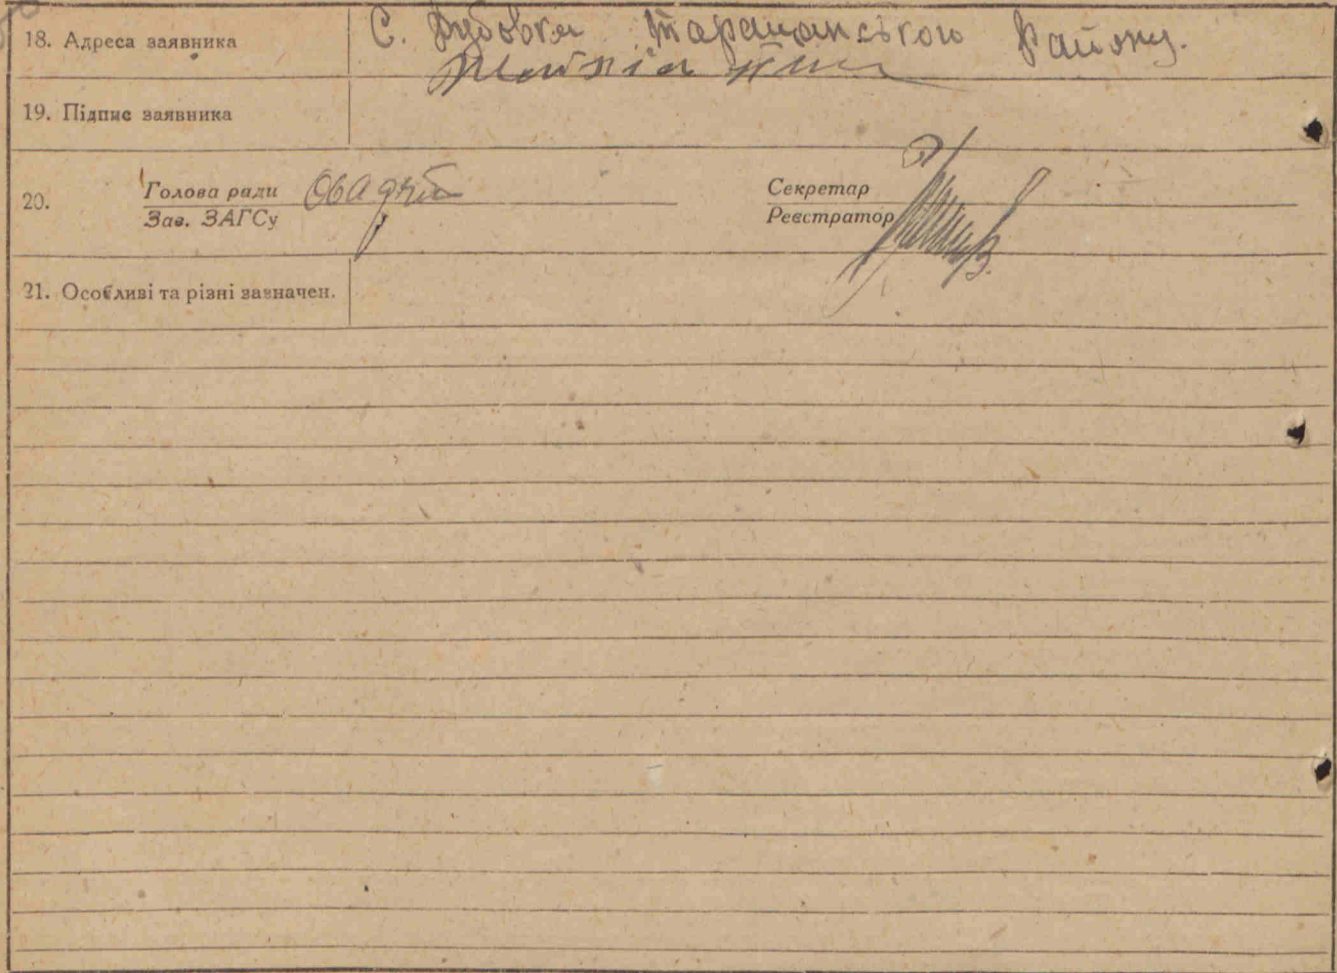 18. Адреса заявника С. Дубовка Таращанського Району.
19. Підпис заявника
20. Голова ради Секретар
Зав. ЗАГСу Реєстратор
21. Особливі та різні зазначен.